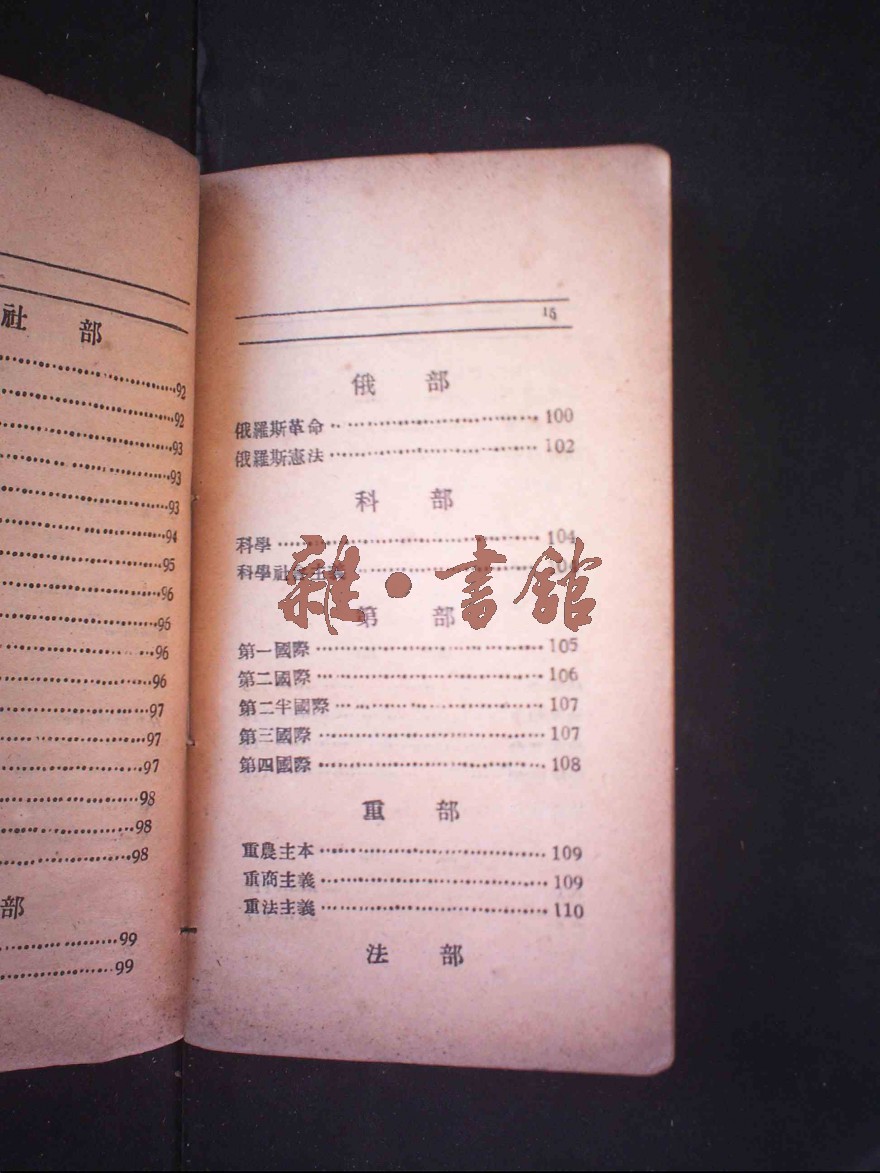 社 部
92
92
93
93
93
94
95
96
96
96
96
97
97
97
98
98
98
部
99
99
15
俄 部
俄羅斯革命 100
俄羅斯憲法 102
科部
科學 104
科學社會主義
雜·書館
第 部
第一國際 105
第二國際 106
第二半國際 107
第三國際 107
第四國際 108
重 部
重農主本 109
重商主義 109
重法主義 110
法 部